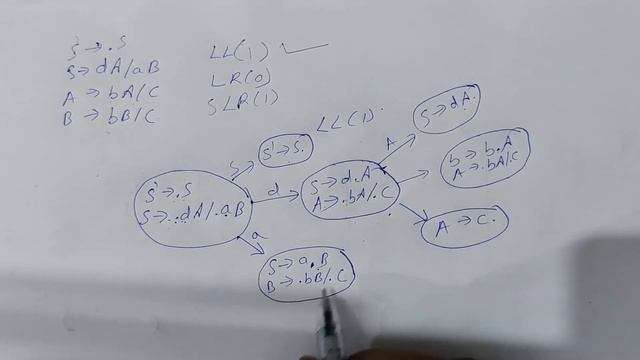 S'→.S
S→dA/aB
A→bA/C
B→bB/C
LL(1) ✓
LR(0)
SLR(1)
LL(1).
S→dA.
A
S'→S.
S
b→b.A
A→.bA/.C
S'→.S
S→..dA/.aB
d
S→d.A
A→.bA/.C
A→C.
a
S→a.B
B→.bB/.C